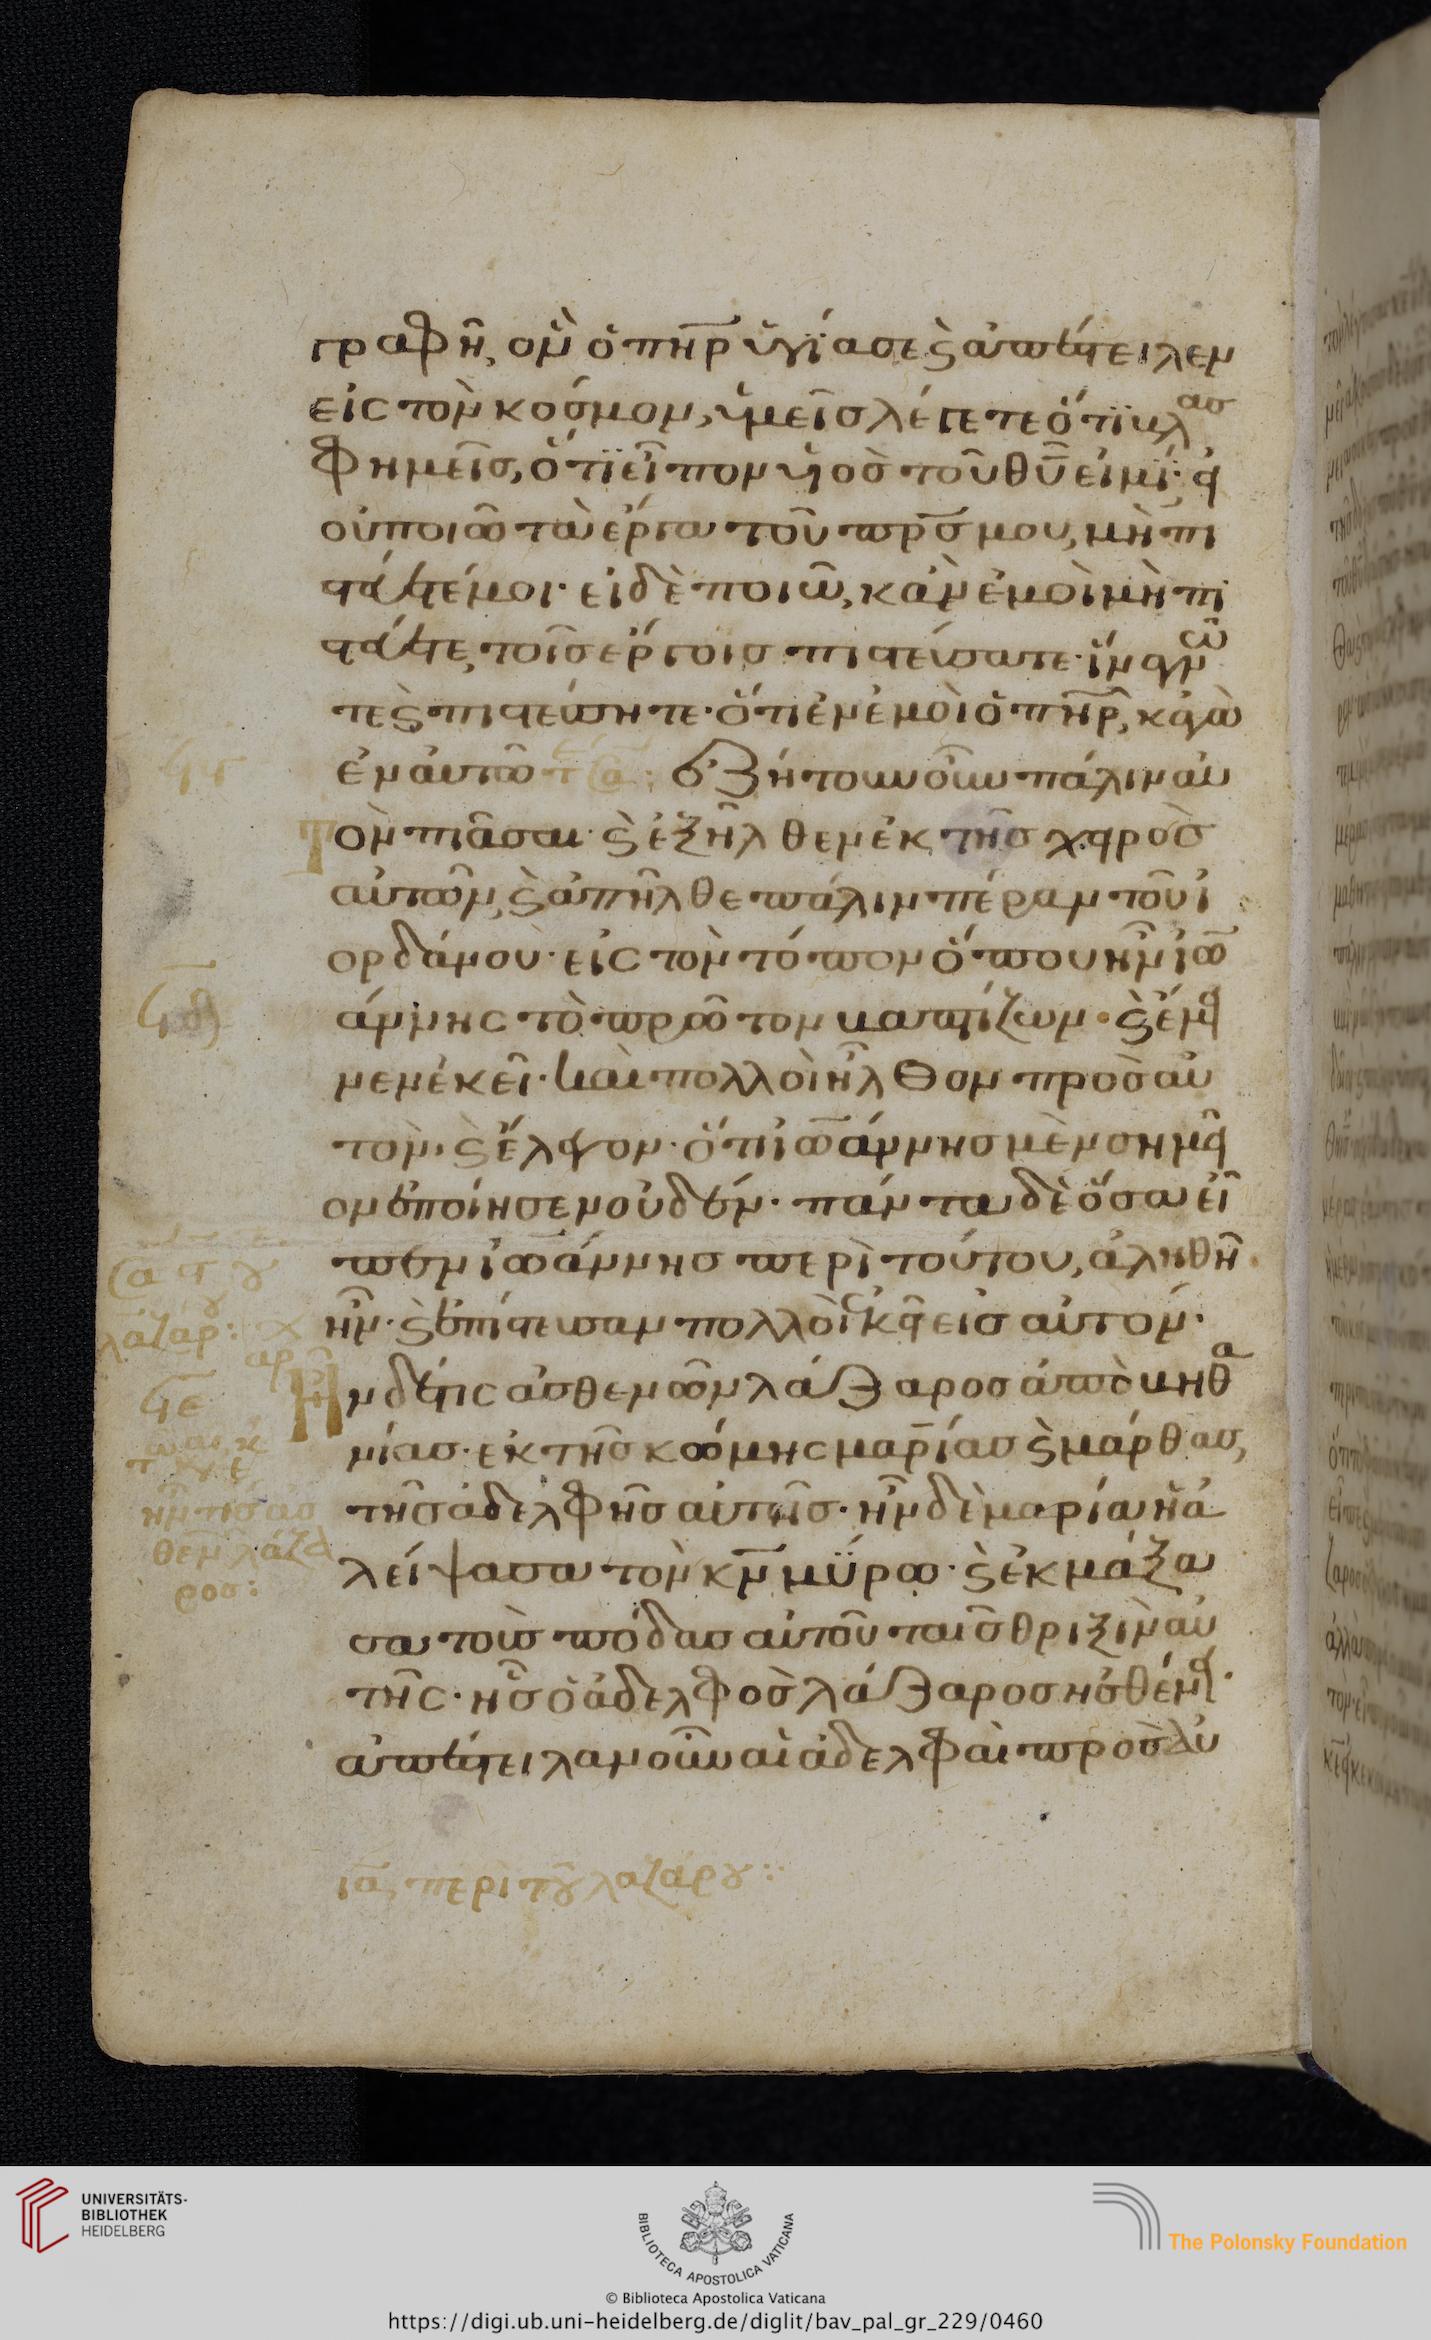 γραφή, ὃν ὁ πη̅ρ ἡγίασε ϗ ἀπέστειλεν
εἰς τὸν κόσμον, ὑμεῖς λέγετε ὅτϊ βλασ
φημεῖς, ὅτϊ εἶπον ὑὸς τοῦ θυ̅ εἰμί· εἰ
οὐ ποιῶ τὰ ἔργα τοῦ πρ̅σ μου, μὴ πι
στεύετέ μοι· εἰ δὲ ποιῶ, κἂν ἐμοὶ μὴ πι
στεύετε, τοῖς ἔργοις πιστεύσατε· ἵνα γνῶ
τε ϗ πιστεύσητε· ὅτι ἐν ἐμοὶ ὁ πη̅ρ, κἀγὼ
ἐν αὐτῶ ἐζήτουν οὖν πάλιν αὐ
τὸν πιᾶσαι· ϗ ἐξῆλθεν ἐκ τῆς χειρὸς
αὐτῶν, ϗ ἀπῆλθε πάλιν πέραν τοῦ ἰ
ορδάνου· εἰς τὸν τόπον ὅπου ἦν ἰω
άννης τὸ πρῶτον βαπτίζων· ϗ ἔμει
νεν ἐκεῖ· καὶ πολλοὶ ἦλθον πρὸς αὐ
τὸν· ϗ ἔλεγον· ὅτι ἰωάννης μὲν σημεῖ
ον ἐποίησεν οὐδέν· πάντα δὲ ὅσα εἶ
πεν ἰωάννης περὶ τούτου, ἀληθῆ
ἦν· ϗ ἐπίστευσαν πολλοὶ ἐκεῖ εἰς αὐτόν·
Ἦν δέ τις ἀσθενῶν λάζαρος ἀπὸ βηθα
νίας· ἐκ τῆς κώμης μαρίας ϗ μάρθας,
τῆς ἀδελφῆς αὐτῆς· ἦν δὲ μαρία ἡ ἀ
λείψασα τὸν κν̅ μύρω· ϗ ἐκμάξα
σα τοὺς πόδας αὐτοῦ ταῖς θριξὶν αὐ
τῆς· ἧς ὁ ἀδελφὸς λάζαρος ἠσθένει·
ἀπέστειλαν οὖν αἱ ἀδελφαὶ πρὸς αὐ
λαζάρ:
ἦν τις ἀσ
θεν λάζα
ρος:
ια περὶ τοῦ λαζάρου:
UNIVERSITÄTS-
BIBLIOTHEK
HEIDELBERG
BIBLIOTECA APOSTOLICA VATICANA
The Polonsky Foundation
© Biblioteca Apostolica Vaticana
https://digi.ub.uni-heidelberg.de/diglit/bav_pal_gr_229/0460